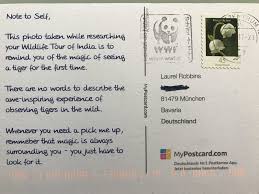 Note to Self,
This photo taken while researching
your Wildlife Tour of India is to
remind you of the magic of seeing
a tiger for the first time.
There are no words to describe the
awe-inspiring experience of
observing tigers in the wild.
Whenever you need a pick me up,
remmeber that magic is always
surrounding you - you just have to
look for it.
MyPostcard.com
WWF
Laurel Robbins
81479 München
Bavaria
Deutschland
MyPostcard.com
Deutschlands Nr.1 Postkarten App
Jetzt kostenlos herunterladen